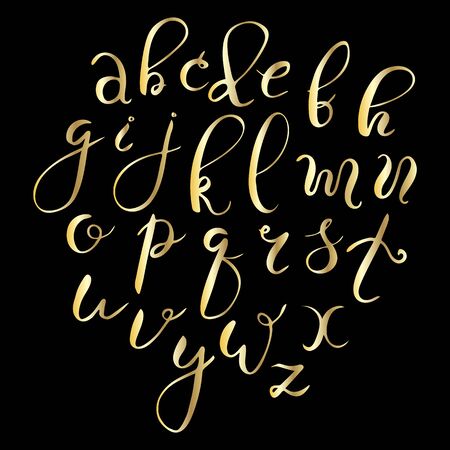 a b c d e f h
g i j k l m n
o p q r s t
u v y w x
z